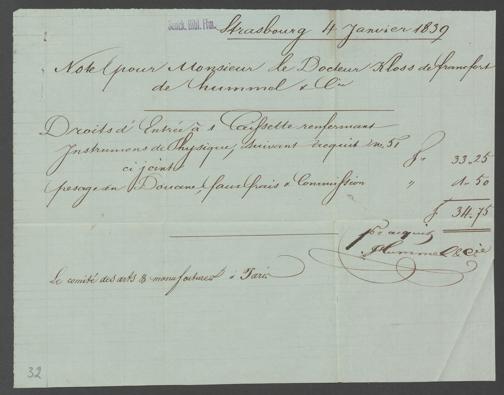 Senck. Bibl. Ffm.
Strasbourg 4 Janvier 1839
Note pour Monsieur le Docteur Kloss de francfort
de hummel & Cie
Droits d'Entrée à 1 Caissette renfermant
Instrumens de Physique, suivant acquit No. 51
ci joint f" 33.25
pesage en Douane, faux frais & Commission " 1.50
f 34.75
pr acquit
Hummel & Cie
Le comité des arts & manufactures à Paris
32